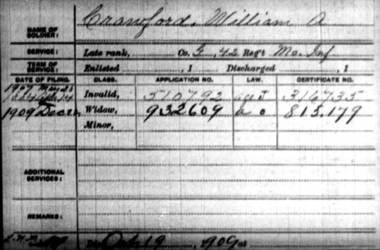 NAME OF SOLDIER: Crawford, William A
SERVICE: Late rank, Co. G, 42 Reg't Mo. Inf
TERM OF SERVICE: Enlisted , 1 Discharged , 1
DATE OF FILING. CLASS. APPLICATION NO. LAW. CERTIFICATE NO.
Invalid, 510792 316735
1909 Dec Widow, 932609 815.179
Minor,
ADDITIONAL SERVICES:
REMARKS:
Oct 19, 1909